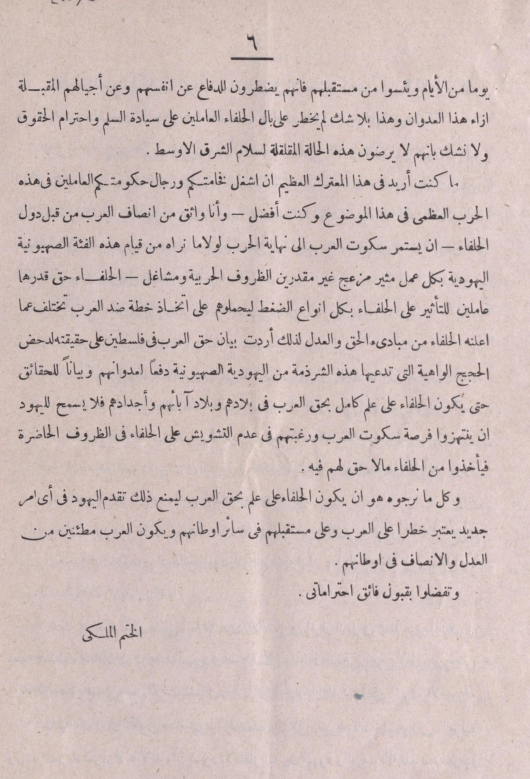 ٦
يوما من الأيام ويئسوا من مستقبلهم فانهم يضطرون للدفاع عن انفسهم وعن أجيالهم المقبلة
ازاء هذا العدوان وهذا بلا شك لم يخطر على بال الحلفاء العاملين على سيادة السلم واحترام الحقوق
ولا نشك بانهم لا يرضون هذه الحالة المقلقلة لسلام الشرق الاوسط .
ما كنت أريد فى هذا المعترك العظيم ان اشغل فخامتكم ورجال حكومتكم العاملين فى هذه
الحرب العظمى فى هذا الموضوع وكنت أفضل – وأنا واثق من انصاف العرب من قبل دول
الحلفاء – ان يستمر سكوت العرب الى نهاية الحرب لولا ما نراه من قيام هذه الفئة الصهيونية
اليهودية بكل عمل مثير مزعج غير مقدرين الظروف الحربية ومشاغل – الحلفاء حق قدرها
عاملين للتأثير على الحلفاء بكل انواع الضغط ليحملوهم على اتخاذ خطة ضد العرب تختلف عما
اعلنه الحلفاء من مبادىء الحق والعدل لذلك أردت بيان حق العرب فى فلسطين على حقيقته لدحض
الحجج الواهية التى تدعيها هذه الشرذمة من اليهودية الصهيونية دفعا لعدوانهم وبياناً للحقائق
حتى يكون الحلفاء على علم كامل بحق العرب فى بلادهم وبلاد آبأئهم وأجدادهم فلا يسمح لليهود
ان ينتهزوا فرصة سكوت العرب ورغبتهم فى عدم التشويش على الحلفاء فى الظروف الحاضرة
فيأخذوا من الحلفاء مالا حق لهم فيه .
وكل ما نرجوه هو ان يكون الحلفاء على علم بحق العرب ليمنع ذلك تقدم اليهود فى أى امر
جديد يعتبر خطرا على العرب وعلى مستقبلهم فى سائر اوطانهم ويكون العرب مطمئنين من
العدل والانصاف فى اوطانهم .
وتفضلوا بقبول فائق احتراماتى .
الختم الملكى